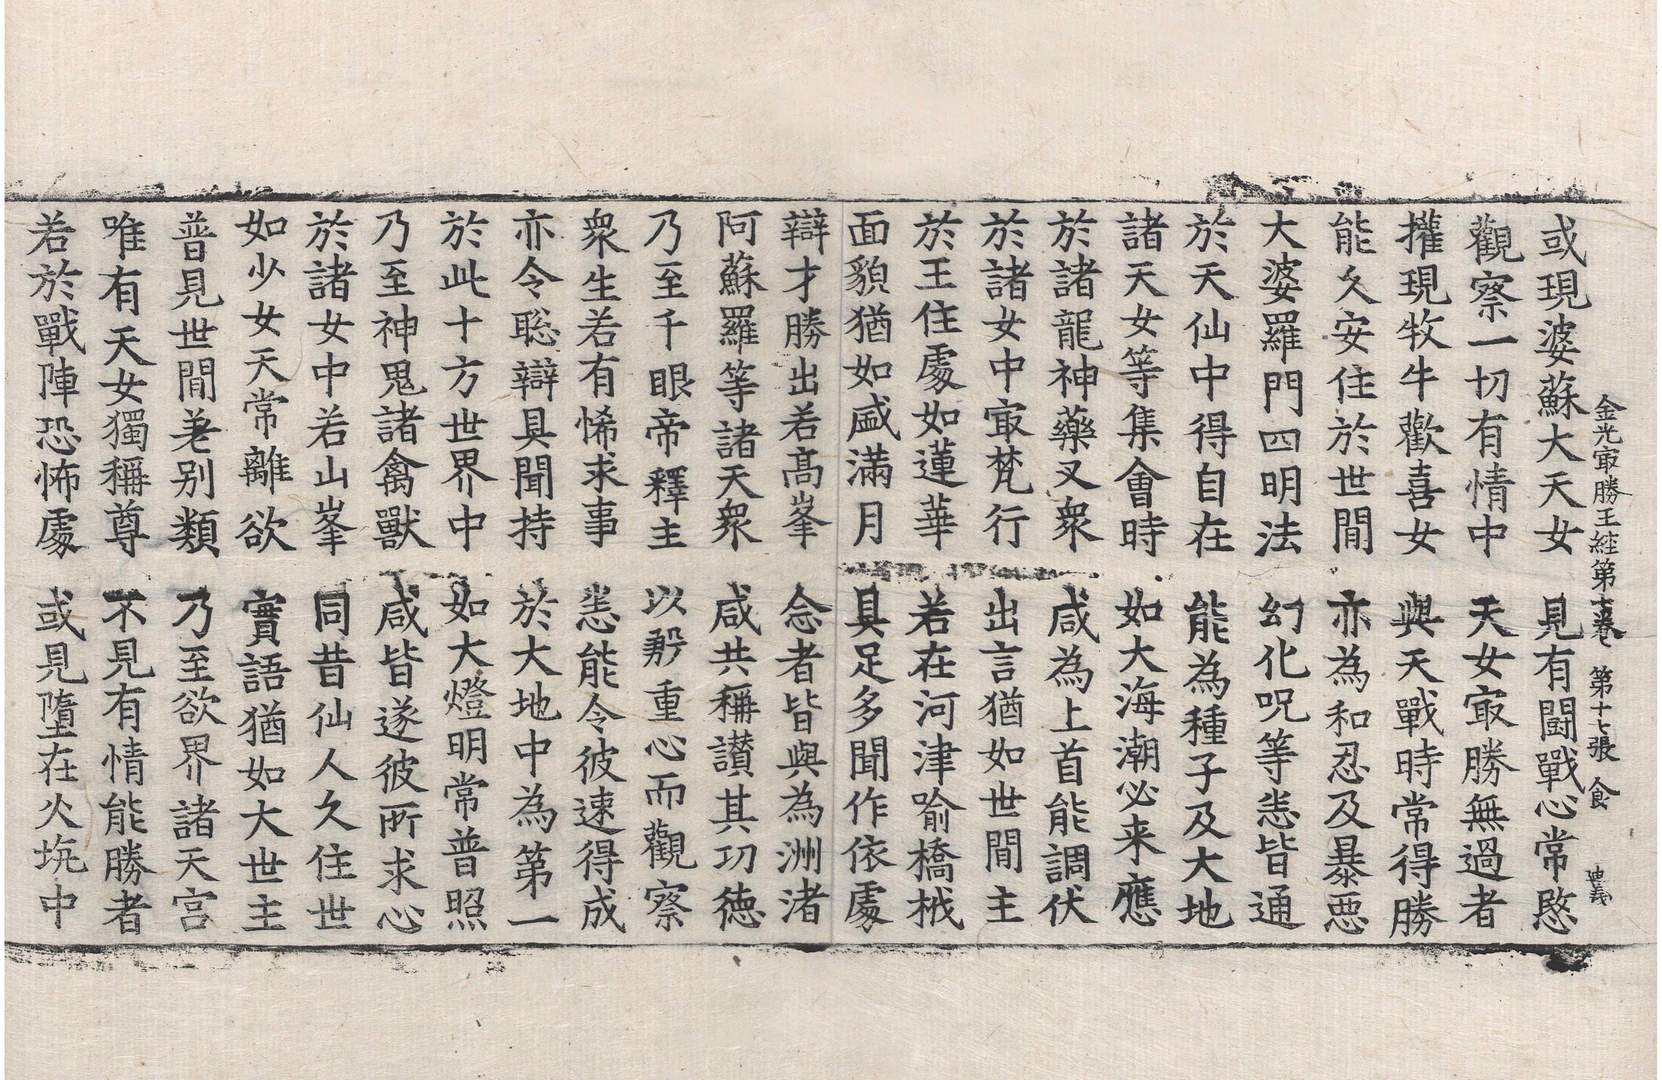 金光㝡勝王經第七卷 第十七張 食
或現婆蘇大天女 見有鬪戰心常愍
觀察一切有情中 天女㝡勝無過者
攉現牧牛歡喜女 與天戰時常得勝
能久安住於世間 亦為和忍及暴惡
大婆羅門四明法 幻化呪等悉皆通
於天仙中得自在 能為種子及大地
諸天女等集會時 如大海潮必来應
於諸龍神藥叉衆 咸為上首能調伏
於諸女中㝡梵行 出言猶如世間主
於王住處如蓮華 若在河津喻橋栰
面貌猶如盛滿月 具足多聞作依處
辯才勝出若髙峯 念者皆與為洲渚
阿蘇羅等諸天衆 咸共稱讃其功德
乃至千眼帝釋主 以慇重心而觀察
衆生若有悕求事 悉能令彼速得成
亦令聡辯具聞持 於大地中為第一
於此十方世界中 如大燈明常普照
乃至神鬼諸禽獸 咸皆遂彼所求心
於諸女中若山峯 同昔仙人久住世
如少女天常離欲 實語猶如大世主
普見世間差别類 乃至欲界諸天宮
唯有天女獨稱尊 不見有情能勝者
若於戰陣恐怖處 或見墮在火坑中